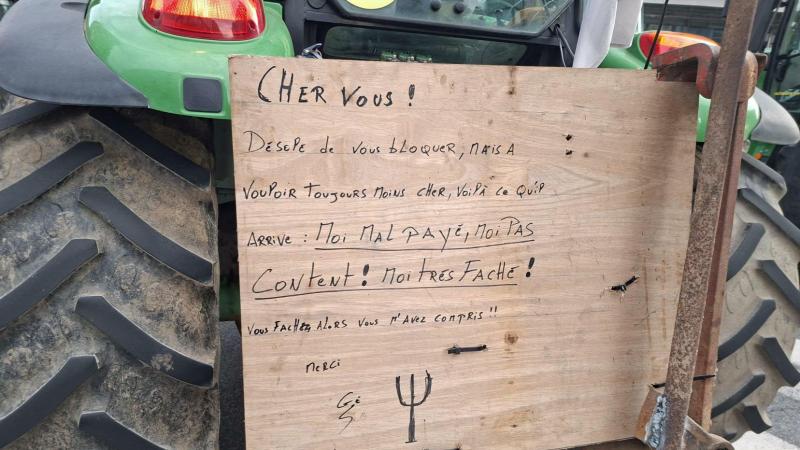 CHER VOUS !
DÉSOLÉ de VOUS bLOQUER, MAIS A
VOULOIR TOUJOURS MOINS CHER, VOILÀ CE QU'IL
ARRIVE : MOI MAL PAYÉ, MOI PAS
CONTENT ! MOI TRES FACHÉ !
VOUS FACHEZ, ALORS VOUS M'AVEZ COMPRIS !!
MERCI